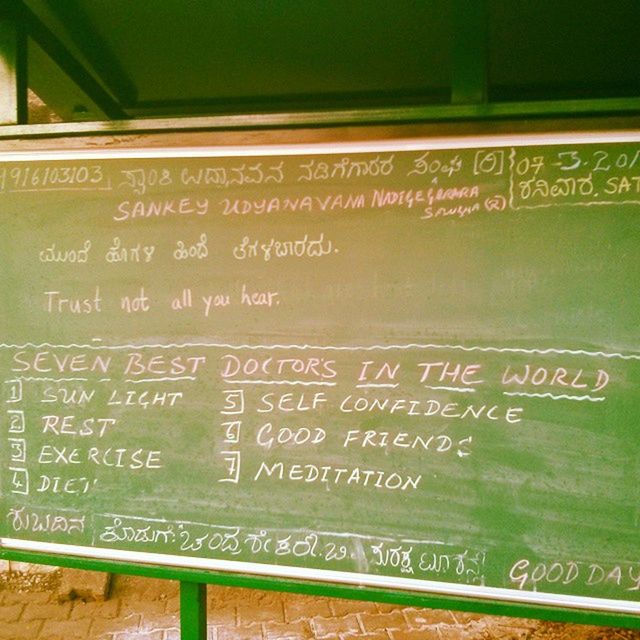 ಸ್ಯಾಂಕಿ ಉದ್ಯಾನವನ ನಡಿಗೆಗಾರರ ಸಂಘ (ರಿ) 07-3-201
SANKEY UDYANAVANA NADIGEGARARA SANGHA (R) ಶನಿವಾರ. SAT
ಮುಂದೆ ಹೊಗಳಿ ಹಿಂದೆ ತೆಗಳಬಾರದು.
Trust not all you hear.
SEVEN BEST DOCTOR'S IN THE WORLD
1 SUN LIGHT
2 REST
3 EXERCISE
4 DIET
5 SELF CONFIDENCE
6 GOOD FRIENDS
7 MEDITATION
ಶುಭದಿನ ಕೊಡುಗೆ: ಚಂದ್ರಶೇಖರ್. ಬಿ. GOOD DAY